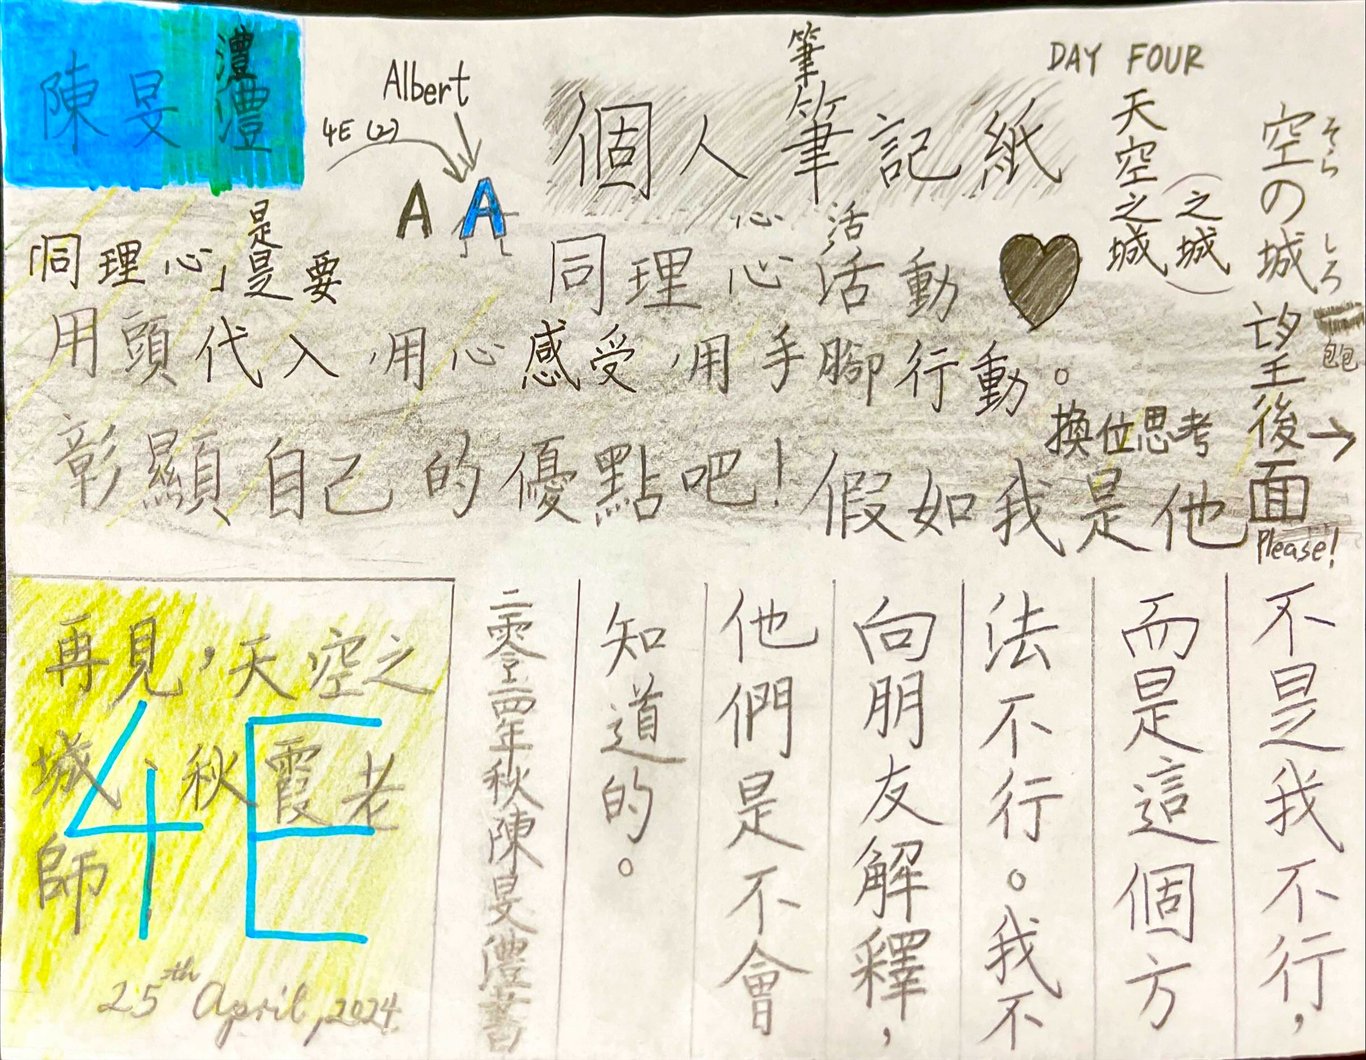 陳旻澧
澧
4E (2)
Albert
A A
筆
個人筆記紙
DAY FOUR
天空之城
(之城)
空の城
そら しろ
望後面→
Please!
包包
「同理心」是要
是
同理心活動♥
心 活
用頭代入，用心感受，用手腳行動。
換位思考
彰顯自己的優點吧！假如我是他
不是我不行，
而是這個方
法不行。我不
向朋友解釋，
他們是不會
知道的。
二零二四年秋陳旻澧書
再見，天空之
城，秋霞老
師！
4E
25th April, 2024.